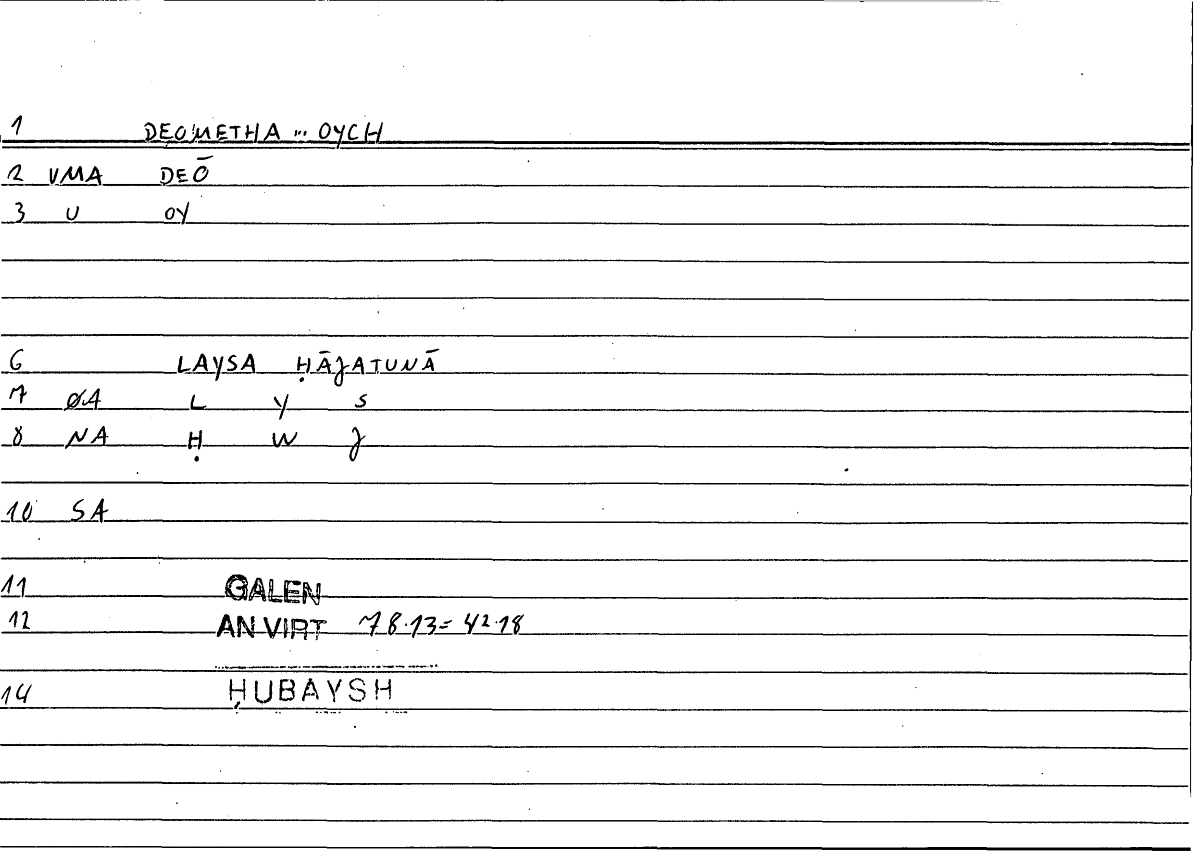 1 DEOMETHA ... OYCH
2 VMA DEŌ
3 U OY
6 LAYSA ḤĀJATUNĀ
7 ØA L Y S
8 NA Ḥ W J
10 SA
11 GALEN
12 AN VIRT 78.13= 42.18
14 ḤUBAYSH